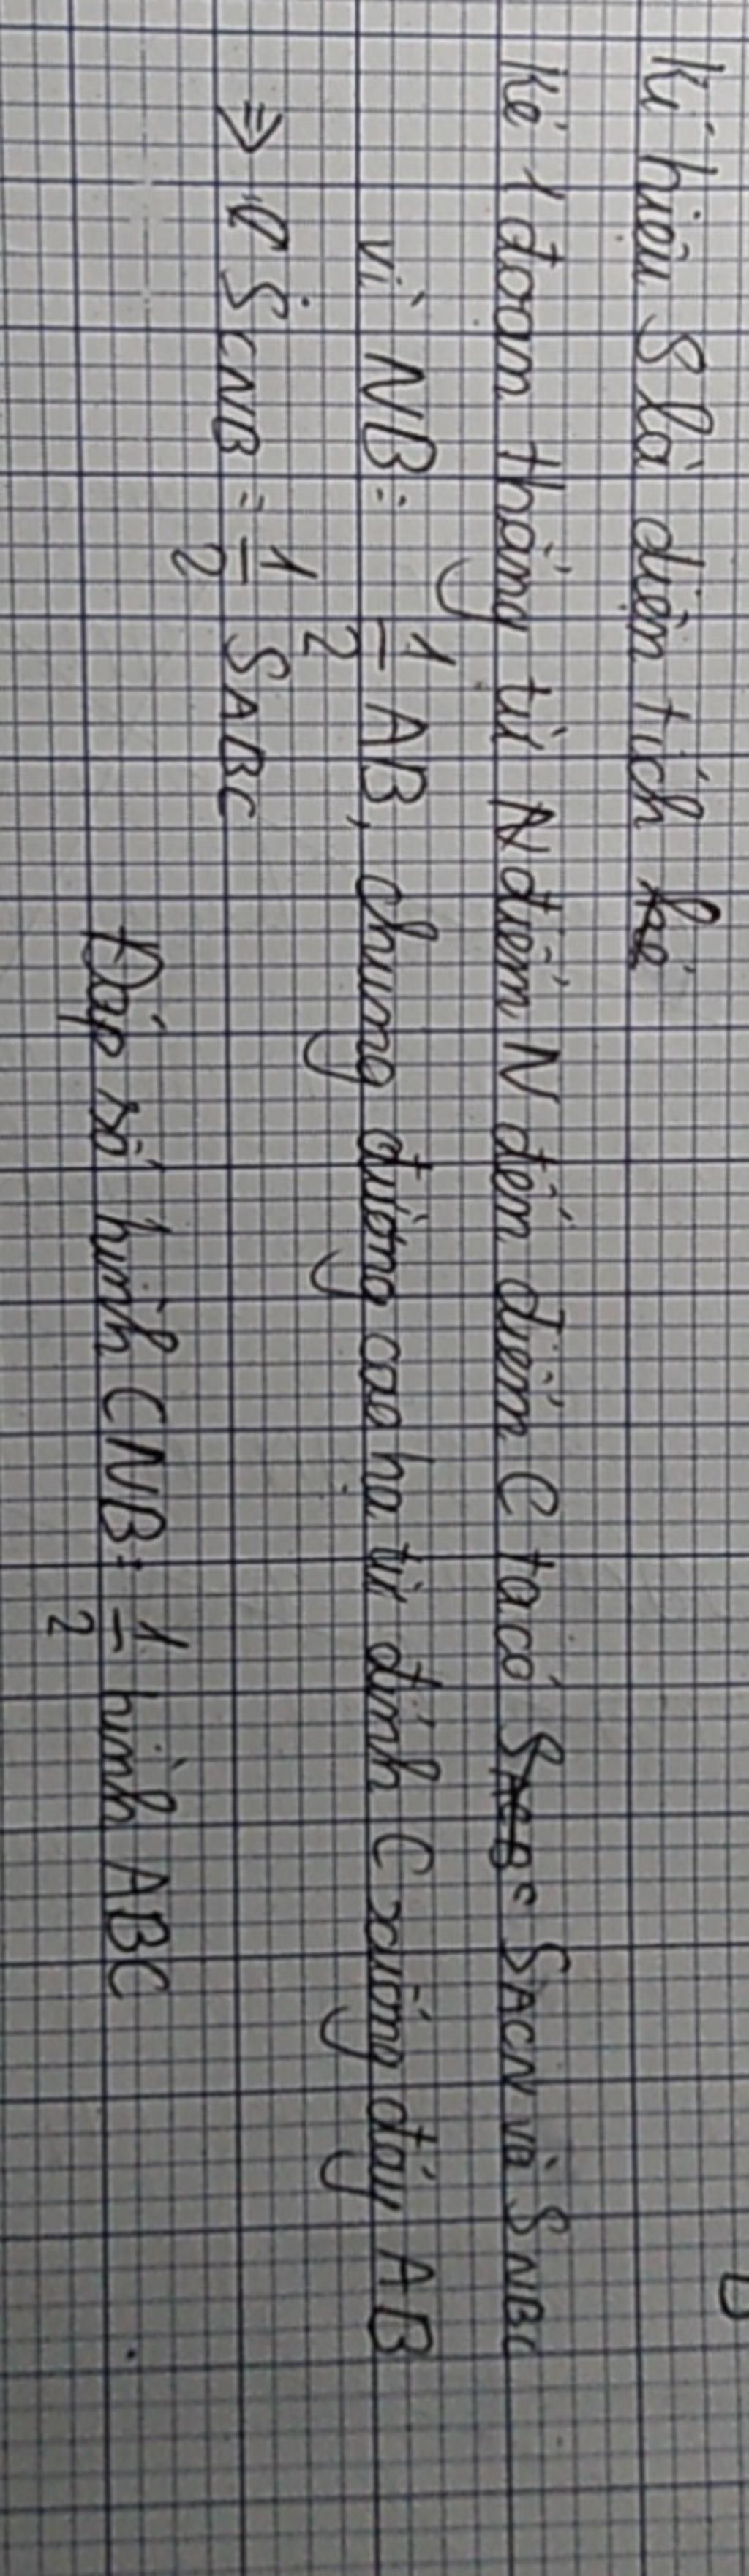 Kí hiệu S là diện tích
Kẻ 1 đoạn thẳng từ N điểm N đến điểm C ta có SACN và SNBC
vì NB = 1/2 AB, chung đường cao hạ từ đỉnh C xuống đáy AB
⇒ SCNB = 1/2 SABC
Đáp số hình CNB = 1/2 hình ABC